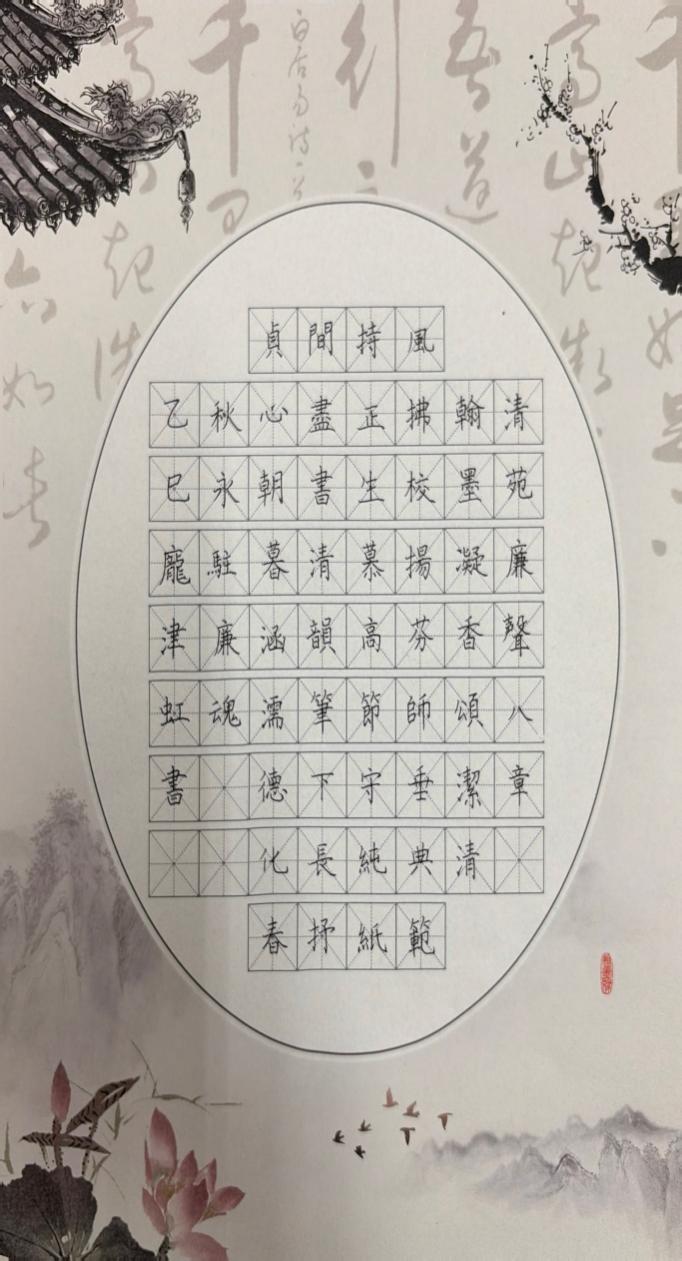 清苑廉聲八章
翰墨凝香頌潔清
風拂校揚芬師垂典範
持正生慕高節守純紙
間盡書清韻筆下長抒
貞心朝暮涵濡德化春
秋永駐廉魂
乙巳龐津虹書